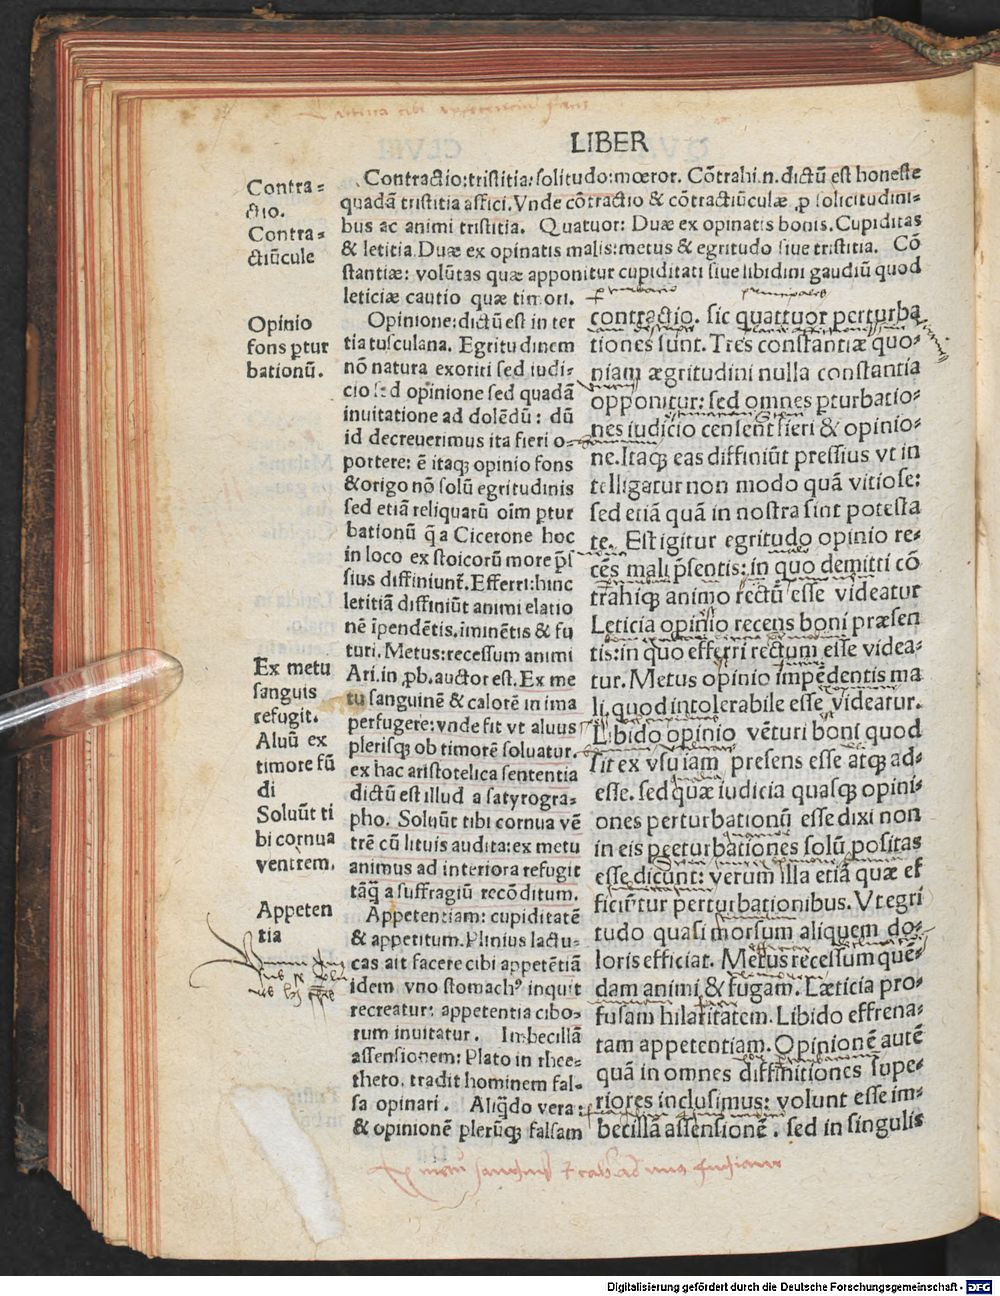 LIBER
Contra=
ctio.
Contra=
ctiũcule
Opinio
fons ꝑtur
bationũ.
Ex metu
sanguis
refugit.
Aluũ ex
timore fũ
di
Soluũt ti
bi cornua
ventrem.
Appeten
tia
Contractio: tristitia: solitudo: mœror. Cõtrahi.n.dictũ est honeste
quadã tristitia affici. Vnde cõtractio & cõtractiũculæ ꝓ solicitudini-
bus ac animi tristitia. Quatuor: Duæ ex opinatis bonis. Cupiditas
& letitia. Duæ ex opinatis malis: metus & egritudo siue tristitia. Cõ
stantiæ: volũtas quæ apponitur cupiditati siue libidini gaudiũ quod
leticiæ cautio quæ timori.
Opinione: dictũ est in ter
tia tusculana. Egritudinem
nõ natura exoriri sed iudi-
cio sed opinione sed quadã
inuitatione ad dolẽdũ: dũ
id decreuerimus ita fieri o-
portere: ẽ itaqꝫ opinio fons
& origo nõ solũ egritudinis
sed etiã reliquarũ oim ꝑtur
bationũ q̃ a Cicerone hoc
in loco ex stoicorũ more p̃s
sius diffiniunt̃. Efferri: hinc
letitiã diffiniũt animi elatio
nẽ ĩpendẽtis, iminẽtis & fu
turi. Metus: recessum animi
Ari. in ꝓb. auctor est. Ex me
tu sanguinẽ & calorẽ in ima
perfugere: vnde fit vt aluus
plerisqꝫ ob timorẽ soluatur
ex hac aristotelica sententia
dictũ est illud a satyrogra=
pho. Soluũt tibi cornua vẽ
trẽ cũ lituis audita: ex metu
animus ad interiora refugit
tãq̃ a suffragiũ recõditum.
Appetentiam: cupiditatẽ
& appetitum. Plinius lactu-
cas ait facere cibi appetẽtiã
idem vno stomachꝰ inquit
recreatur: appetentia cibo-
rum inuitatur. Imbecillã
assensionem: Plato in thee-
theto. tradit hominem fal-
sa opinari. Aliq̃do vera:
& opinionẽ plerũqꝫ falsam
contractio. sic quattuor perturba
tiones sunt. Tres constantiæ quo-
niam ægritudini nulla constantia
opponitur: sed omnes ꝑturbatio-
nes iudicio censent fieri & opinio-
ne. Itaqꝫ eas diffiniũt pressius vt in
telligatur non modo quã vitiose:
sed etiã quã in nostra sint potesta
te. Est igitur egritudo opinio re-
cẽs mali p̃sentis: in quo demitti cõ
trahiqꝫ animo rectũ esse videatur
Leticia opinio recens boni præsen
tis: in quo efferri rectum esse videa-
tur. Metus opinio impẽdentis ma
li, quod intolerabile esse videatur.
Libido opinio vẽturi boni quod
sit ex vsu iam presens esse atqꝫ ad-
esse. sed quæ iudicia quasqꝫ opini-
ones perturbationũ esse dixi non
in eis peeturbationes solũ positas
esse dicunt: verum illa etiã quæ ef
ficiũtur perturbationibus. Vt egri
tudo quasi morsum aliquem do-
loris efficiat. Metus recessum que-
dam animi & fugam. Læticia pro-
fusam hilaritatem. Libido effrena-
tam appetentiam. Opinionẽ autẽ
quã in omnes diffinitiones supe-
riores inclusimus: volunt esse im-
becillã assensionẽ. sed in singulis
Digitalisierung gefördert durch die Deutsche Forschungsgemeinschaft - DFG